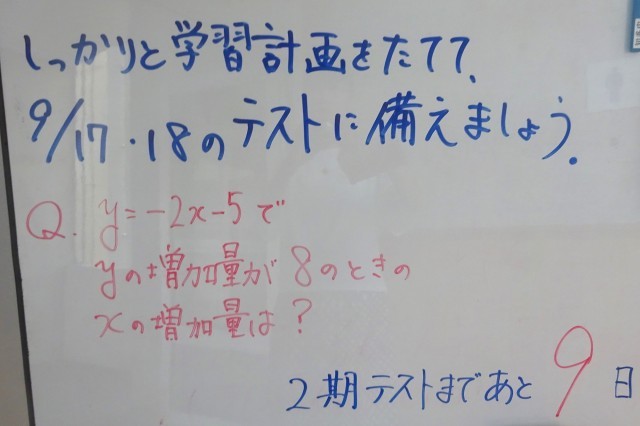 しっかりと学習計画をたてて、
9/17・18のテストに備えましょう。
Q. y=-2x-5で
yの増加量が8のときの
xの増加量は?
2期テストまであと9日